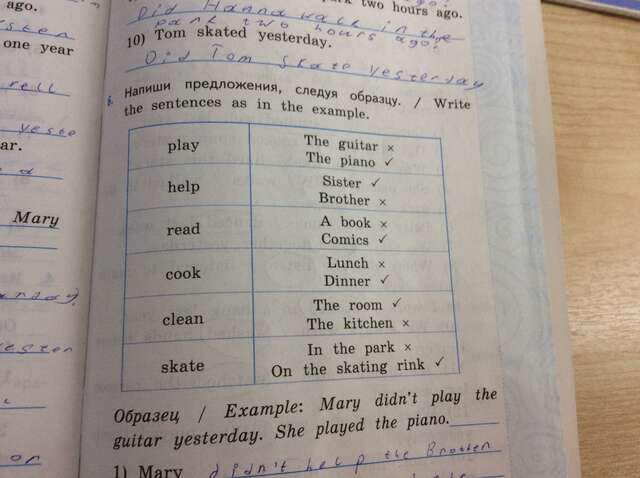 ago.
two hours ago.
Did Hanna walk in the
park two hours ago?
10) Tom skated yesterday.
Did Tom skate yesterday
one year
Напиши предложения, следуя образцу. / Write
the sentences as in the example.
play The guitar ×
The piano ✓
help Sister ✓
Brother ×
read A book ×
Comics ✓
cook Lunch ×
Dinner ✓
clean The room ✓
The kitchen ×
skate In the park ×
On the skating rink ✓
Mary
Образец / Example: Mary didn't play the
guitar yesterday. She played the piano.
1) Mary didn't help the Brother